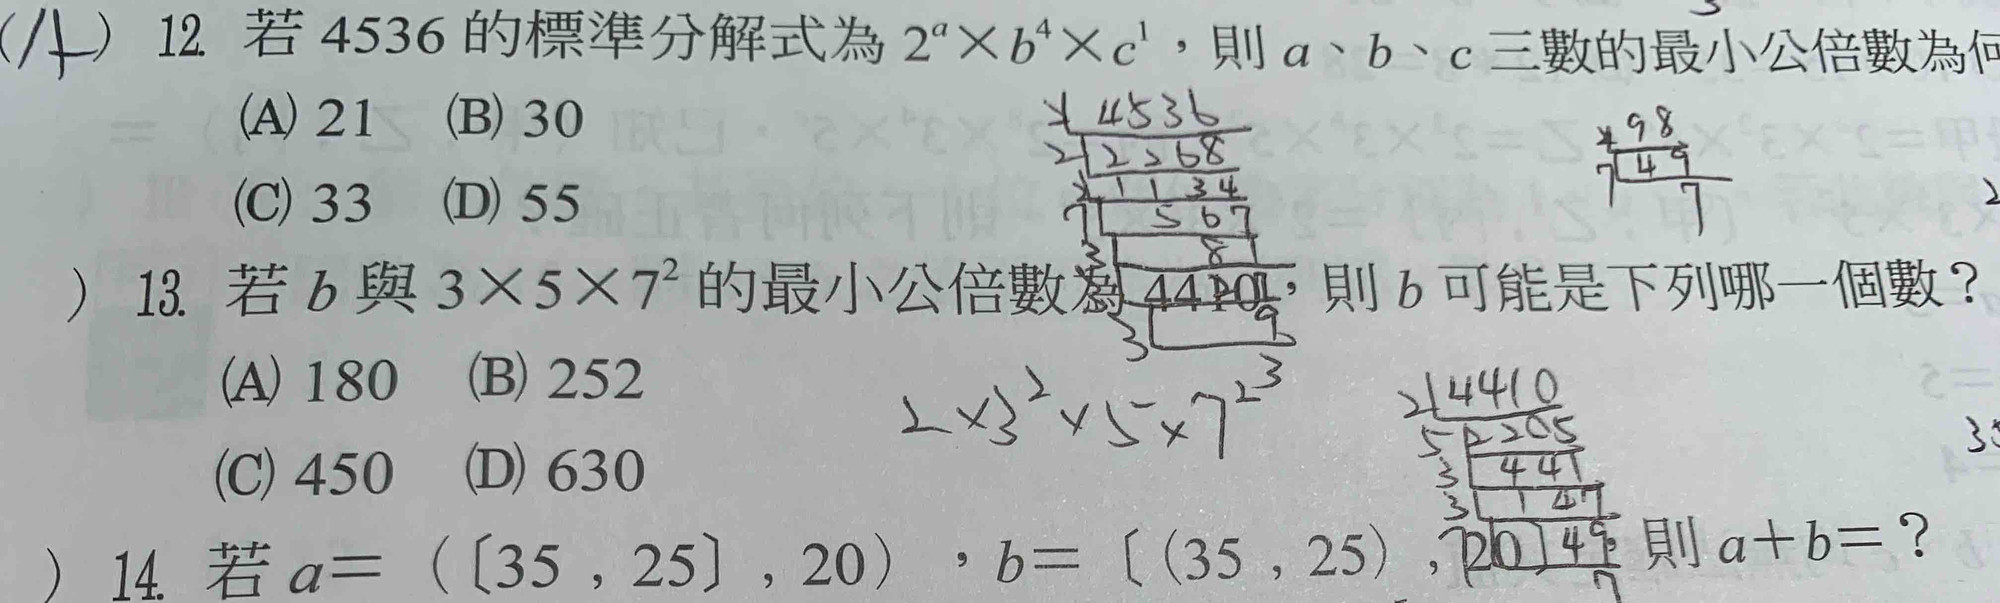 12. 若 4536 的標準分解式為 2ᵃ×b⁴×c¹，則 a、b、c 三數的最小公倍數為何
(A) 21 (B) 30
(C) 33 (D) 55
2 4536
2 2268
2 1134
7 567
3 81
3 9
3
2 98
7 49
7
) 13. 若 b 與 3×5×7² 的最小公倍數為 4410，則 b 可能是下列哪一個數？
(A) 180 (B) 252
(C) 450 (D) 630
2×3²×5×7²
2 4410
5 2205
3 441
3 147
7 49
7
) 14. 若 a=（〔35，25〕，20），b=〔（35，25），20〕 則 a+b=？